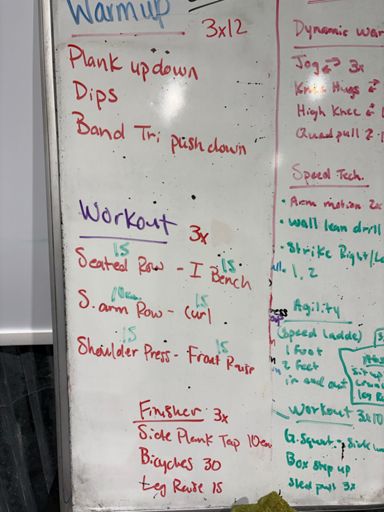 Warmup 3x12
Plank up down
Dips
Band Tri push down
Workout 3x
15 15
Seated Row - I Bench
10ea 15
S. arm Row - Curl
15 15
Shoulder Press - Front Raise
Finisher 3x
Side Plank Tap 10ea
Bicycles 30
Leg Raise 15
Dynamic War
Jog 3x
Knee Hugs
High Knee
Quad pull 2
Speed Tech.
• Arm motion 2x
• wall lean drill
• Strike Right/Le
1, 2
Agility
(Speed Ladder)
1 foot
2 feet
in and out
Workout 3x10
G. Squat - Side lu
Box step up
sled push 3x